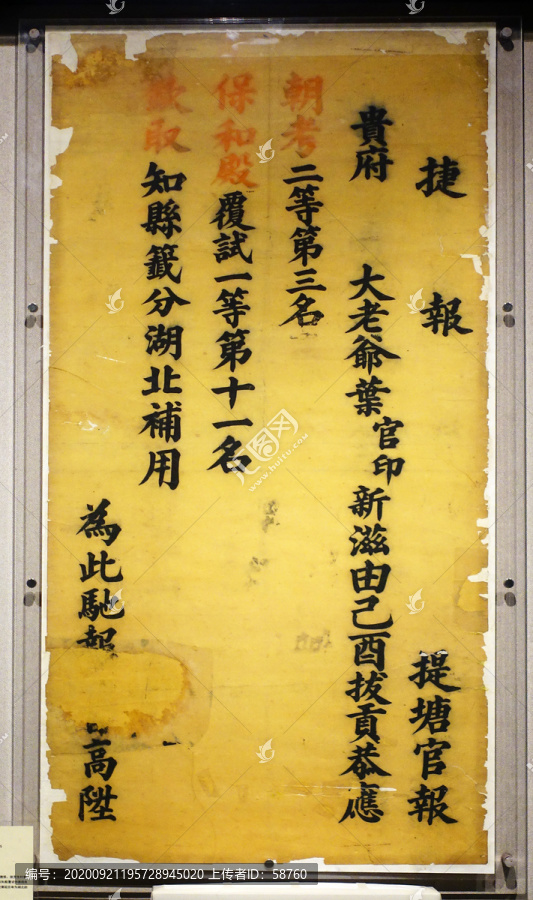 捷報 提塘官報
貴府 大老爺葉官印新滋由己酉拔貢恭應
朝考二等第三名
保和殿覆試一等第十一名
欽取知縣籤分湖北補用
為此馳報 高陞
汇图网
www.huitu.com
编号：20200921195728945020 上传者ID：58760